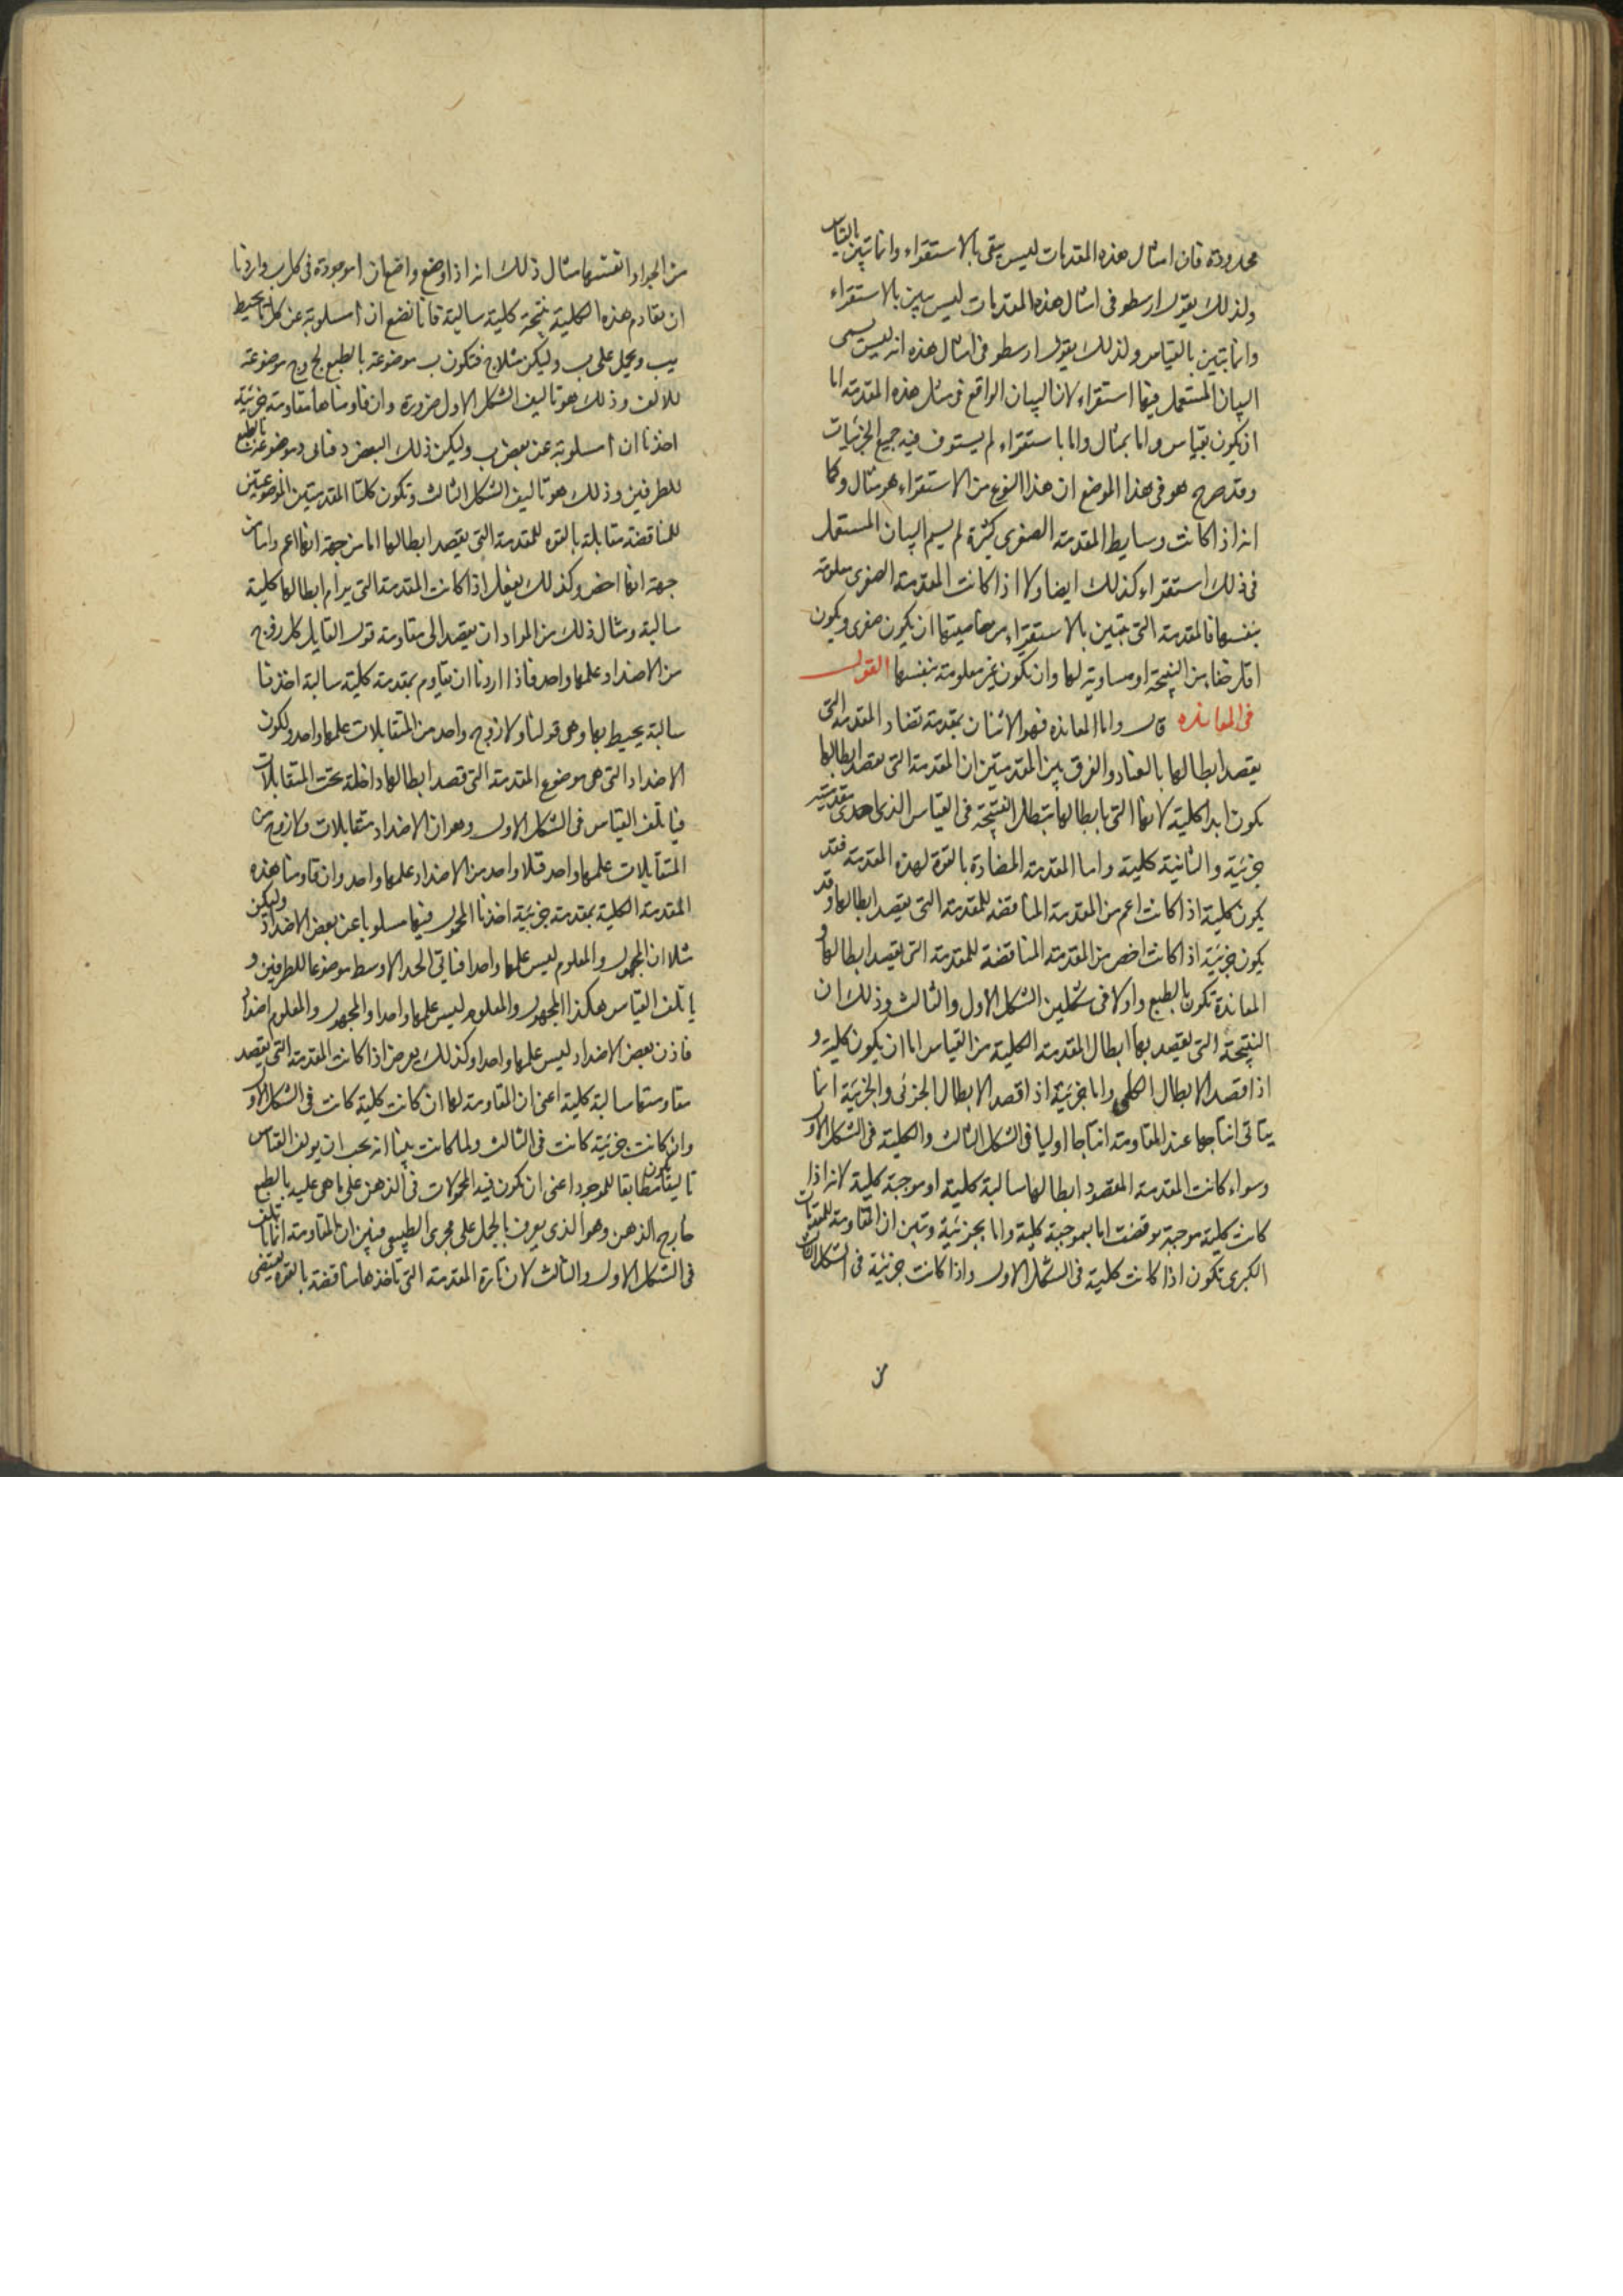 محدودة فان امثال هذه المقدمات ليس يبقى بالاستقراء وانما تبين بالقياس
ولذلك يقول ارسطو في امثال هذه المقدمات ليس يبين بالاستقراء
وانما تبين بالقياس ولذلك يقول ارسطو في امثال هذه انه ليس يسمى
البيان المستعمل فيها استقراء لان البيان الواقع في مثل هذه المقدمة اما
ان يكون بقياس واما بمثال واما باستقراء لم يستوف فيه جميع الجزئيات
وقد صرح هو في هذا الموضع ان هذا النوع من الاستقراء هو مثال وكما
انه اذا كانت وسايط المقدمة الصغرى كثيرة لم يسم البيان المستعمل
في ذلك استقراء كذلك ايضا ولا اذا كانت المقدمة الصغرى معلومة
بنفسها فالمقدمة التي تبين بالاستقراء من خاصيتها ان يكون صغرى ويكون
اقل خفاء من النتيجة او مساوية لها وان تكون غير معلومة بنفسها القول
في المعانده قال واما المعانده فهو الاتيان بمقدمة تضاد المقدمة التي
يقصد ابطالها بالعناد والفرق بين المقدمتين ان المقدمة التي يقصد ابطالها
يكون ابدا كلية لانها التي بابطالها تبطل النتيجة في القياس الذي احدى مقدمتيه
جزئية والثانية كلية واما المقدمة المضادة بالقوة لهذه المقدمة فقد
يكون كلية اذا كانت اعم من المقدمة المناقضه للمقدمة التي يقصد ابطالها وقد
يكون جزئية اذا كانت اخص من المقدمة المناقضة للمقدمة التي يقصد ابطالها و
المعاندة تكون بالطبع واولا في شكلين الشكل الاول والثالث وذلك ان
النتيجة التي يقصد بها ابطال المقدمة الكلية من القياس اما ان يكون كلية و
اذا قصد الابطال الكلي واما جزئية اذا قصد الابطال الجزئي والجزئية انما
يتاتى انتاجها عند المقاومة انتاجا اوليا في الشكل الثالث والكلية في الشكل الاول
وسواء كانت المقدمة المقصود ابطالها سالبة كلية او موجبة كلية لانه اذا
كانت كلية موجبة نوقضت اما بموجبة كلية واما بجزئية وتبين ان المقاومة للمقدمات
الكبرى تكون اذا كانت كلية في الشكل الاول واذا كانت جزئية في الشكل الثالث
من
من المواد انفسها مثال ذلك انه اذا وضع واضع ان ا موجودة في كل ب واردنا
ان نقاوم هذه الكلية بنتيجة كلية سالبة فانا نضع ان ا مسلوبة عن كل ما يحيط
بب ويحمل على ب وليكن مثلا ج فتكون ب موضوعة بالطبع لج وج موضوعة
للالف وذلك هو تاليف الشكل الاول ضرورة وان قاومناها مقاومة جزئية
اخذنا ان ا مسلوبة عن بعض ب وليكن ذلك البعض د فتاتي د موضوعة بالطبع
للطرفين وذلك هو تاليف الشكل الثالث وتكون كلتا المقدمتين الموضوعتين
للمناقضة مقابلة بالقوه للمقدمة التي يقصد ابطالها اما من جهة انها اعم واما من
جهة انها اخص وكذلك يفعل اذا كانت المقدمة التي يرام ابطالها كلية
سالبة ومثال ذلك من المواد ان يقصد الى مقاومة قول القايل كل زوج
من الاضداد علمها واحد فاذا اردنا ان نقاوم بمقدمة كلية سالبة اخذنا
سالبة يحيط بها وهي قولنا ولا زوج واحد من المتقابلات علمها واحد ولكون
الاضداد التي هي موضوع المقدمة التي قصد ابطالها داخلة تحت المتقابلات
فياتلف القياس في الشكل الاول وهو ان الاضداد متقابلات ولا زوج من
المتقابلات علمها واحد فلا واحد من الاضداد علمها واحد وان قاومنا هذه
المقدمة الكلية بمقدمة جزئية اخذنا المحمول فيها مسلوبا عن بعض الاضداد وليكن
مثلا ان المجهول والمعلوم ليس علمها واحدا فياتي الحد الاوسط موضوعا للطرفين و
ياتلف القياس هكذا المجهول والمعلوم ليس علمها واحدا والمجهول والمعلوم اضداد
فاذن بعض الاضداد ليس علمها واحدا وكذلك يعرض اذا كانت المقدمة التي يقصد
مقاومتها سالبة كلية اعني ان المقاومة لها ان كانت كلية كانت في الشكل الاول
وان كانت جزئية كانت في الثالث ولما كانت بينا انه يجب ان يولف القياس
تاليفا يكون مطابقا للموجود اعني ان تكون فيه المحمولات في الذهن على ما هي عليه بالطبع
خارج الذهن وهو الذي يعرف بالحمل على مجرى الطبيعي فبين ان المقاومة انما تاتلف
في الشكل الاول والثالث لان تارة المقدمة التي تاخذها مناقضة بالقوة يقتضي